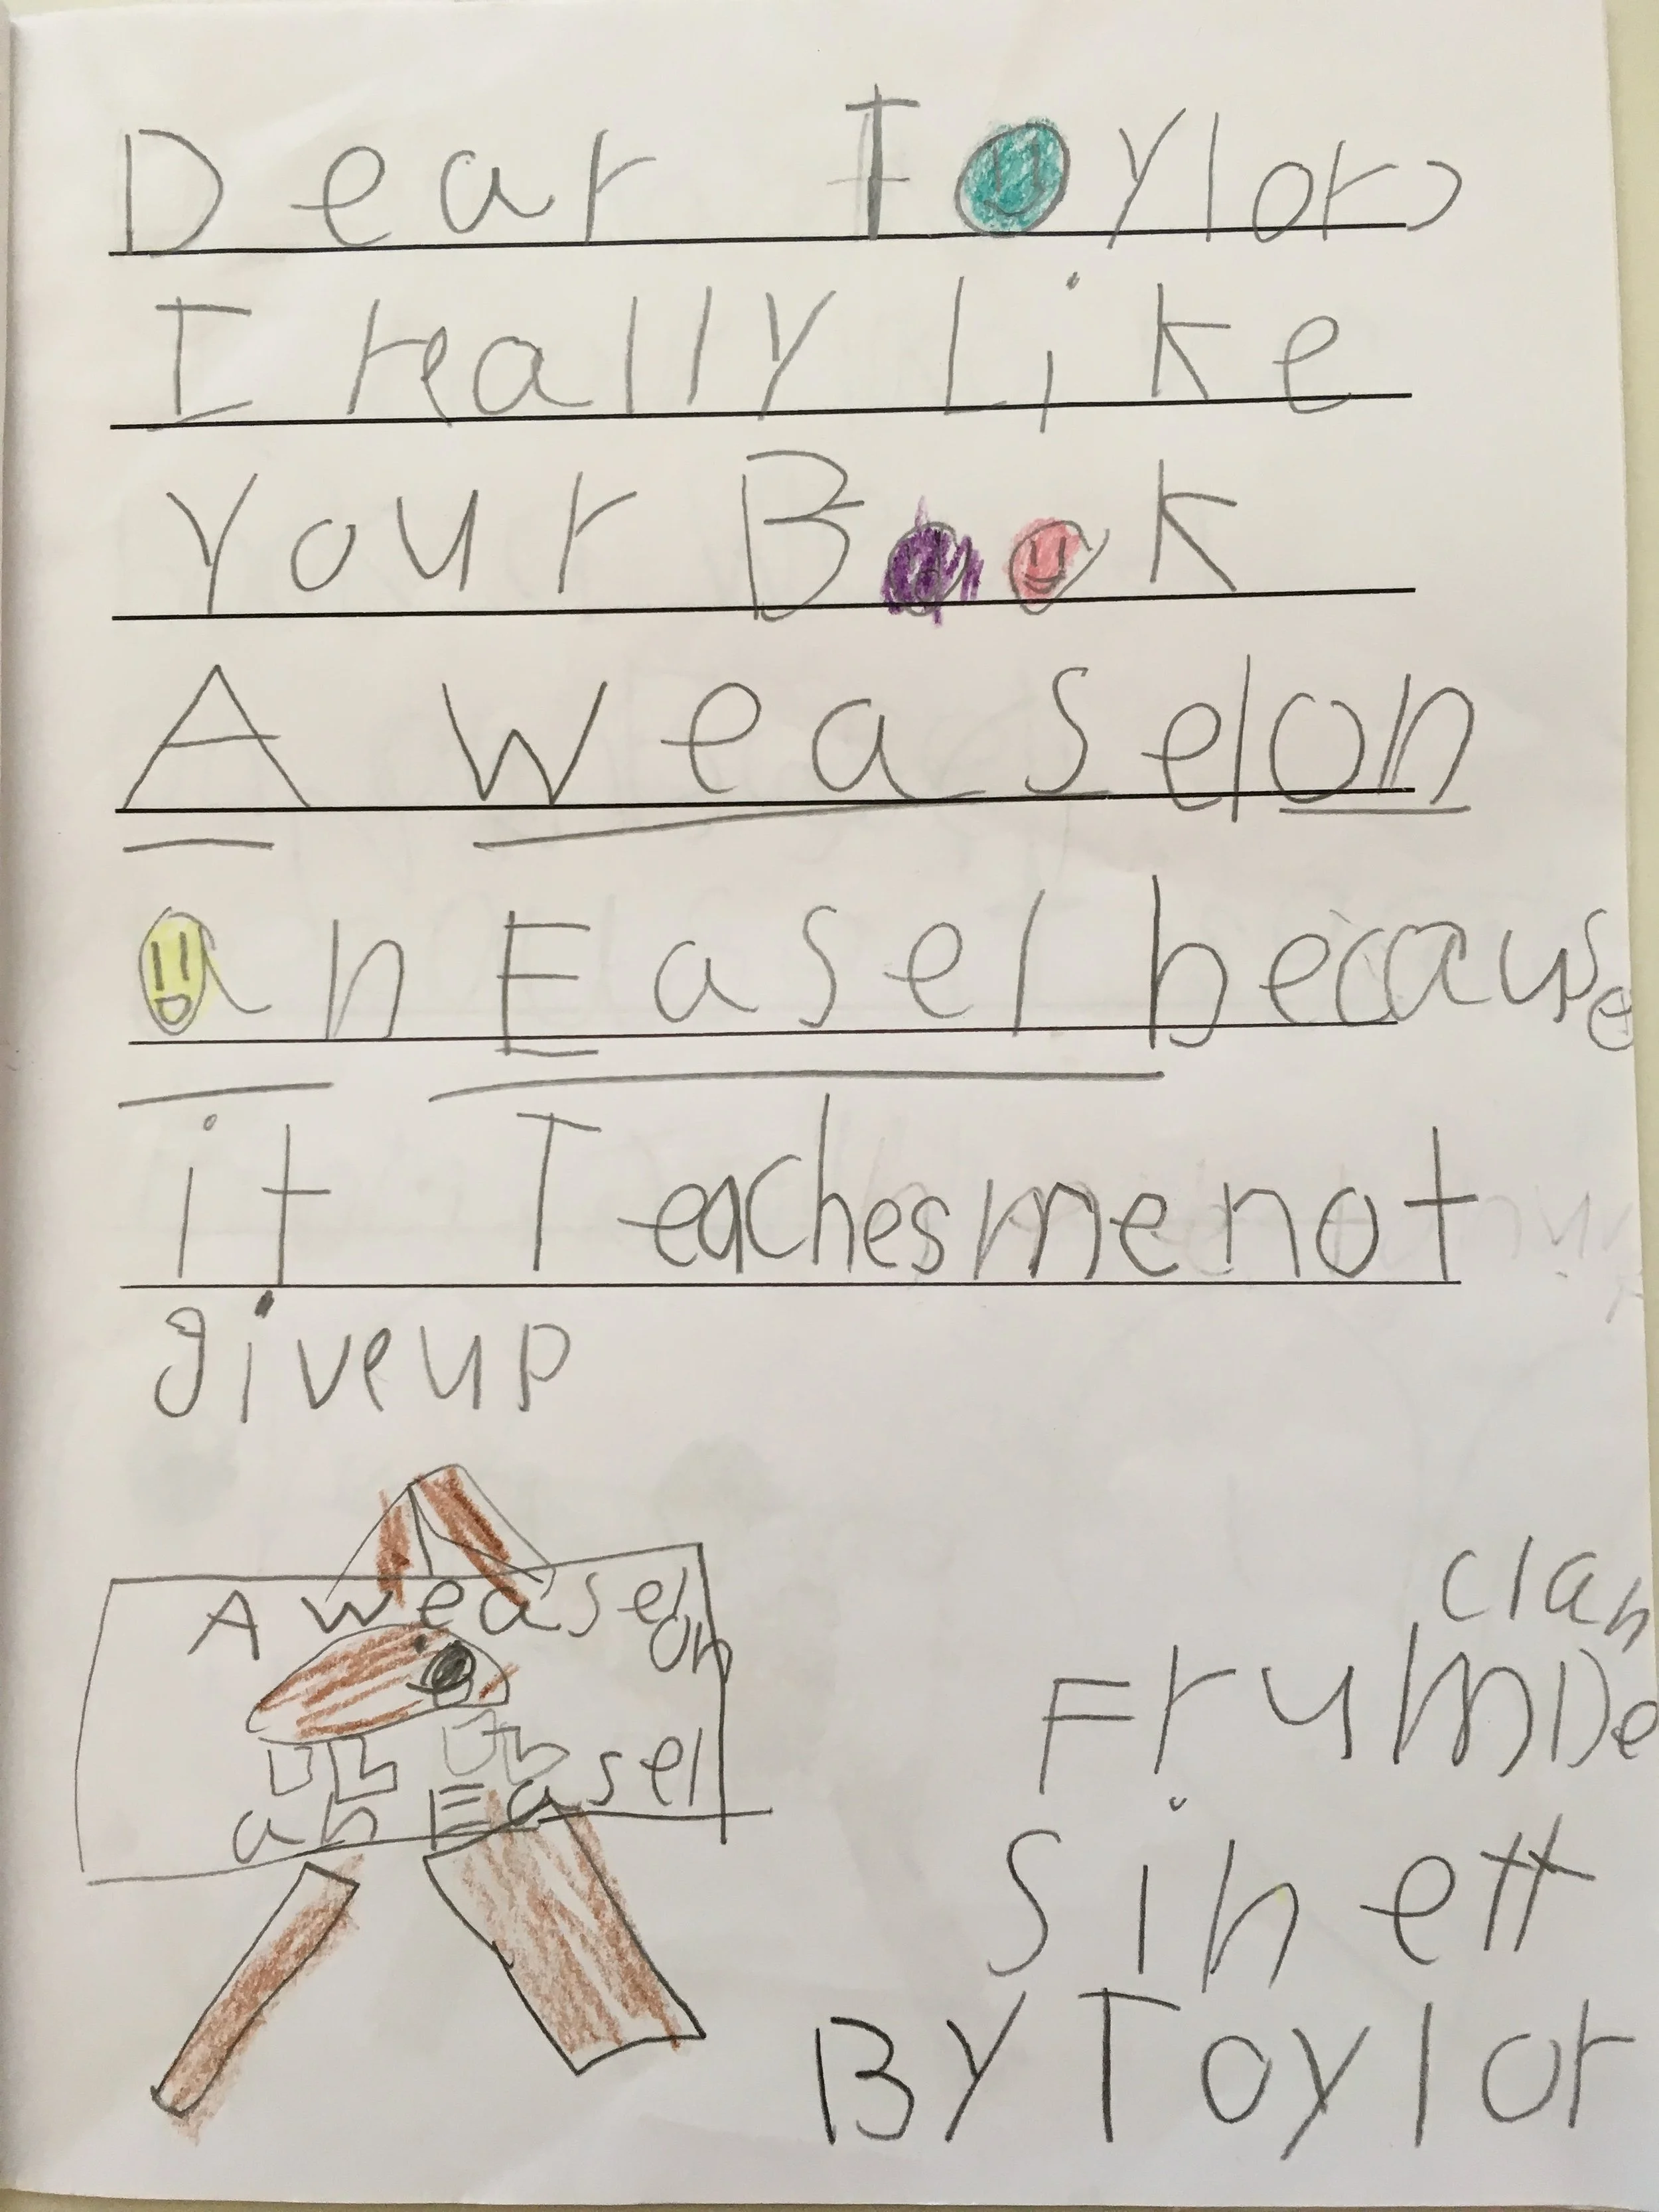 Dear Toylor,
I really Like
your Book
A weasel on
an Easel because
it Teaches me not
give up
A weasel on
an Easel
clan
Frum De
Sinett
By Toylor